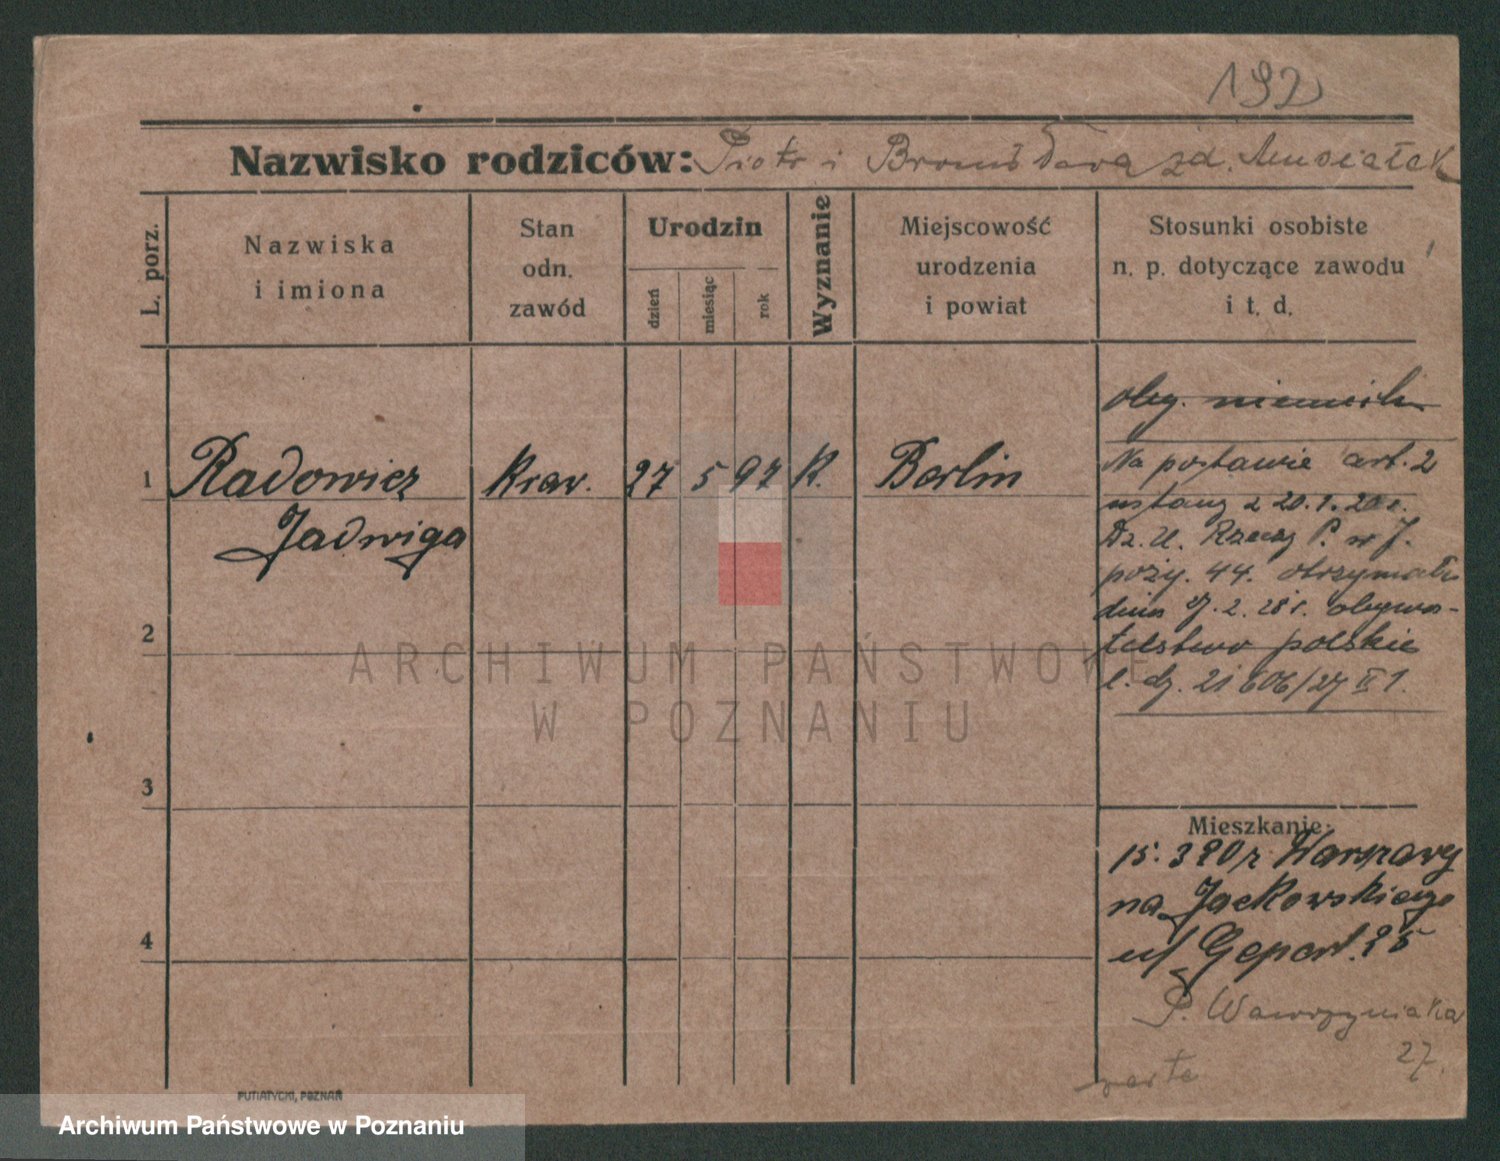 192
Nazwisko rodziców: Piotr i Bronisława zd. Musiałek
L. porz.
Nazwiska
i imiona
Stan
odn.
zawód
Urodzin
dzień
miesiąc
rok
Wyznanie
Miejscowość
urodzenia
i powiat
Stosunki osobiste
n. p. dotyczące zawodu
i t. d.
obyw. niemieckie
1 Radowicz kraw. 27 5 97 K. Berlin
Jadwiga
Na postawie art. 2
ustawy z 20.1.20 r.
Dz. U. Rzecz P. w J.
poży. 44. otrzymała
dnia 7.2.28 r. obywa-
telstwo polskie
l. dz. 21606/27 II 1.
2
3
4
Mieszkanie:
15.3 20 z Warszawy
na Jackowskiego
ul
P. Wawrzyniaka
27.
PUTIATYCKI, POZNAŃ
ARCHIWUM PAŃSTWOWE
W POZNANIU
Archiwum Państwowe w Poznaniu